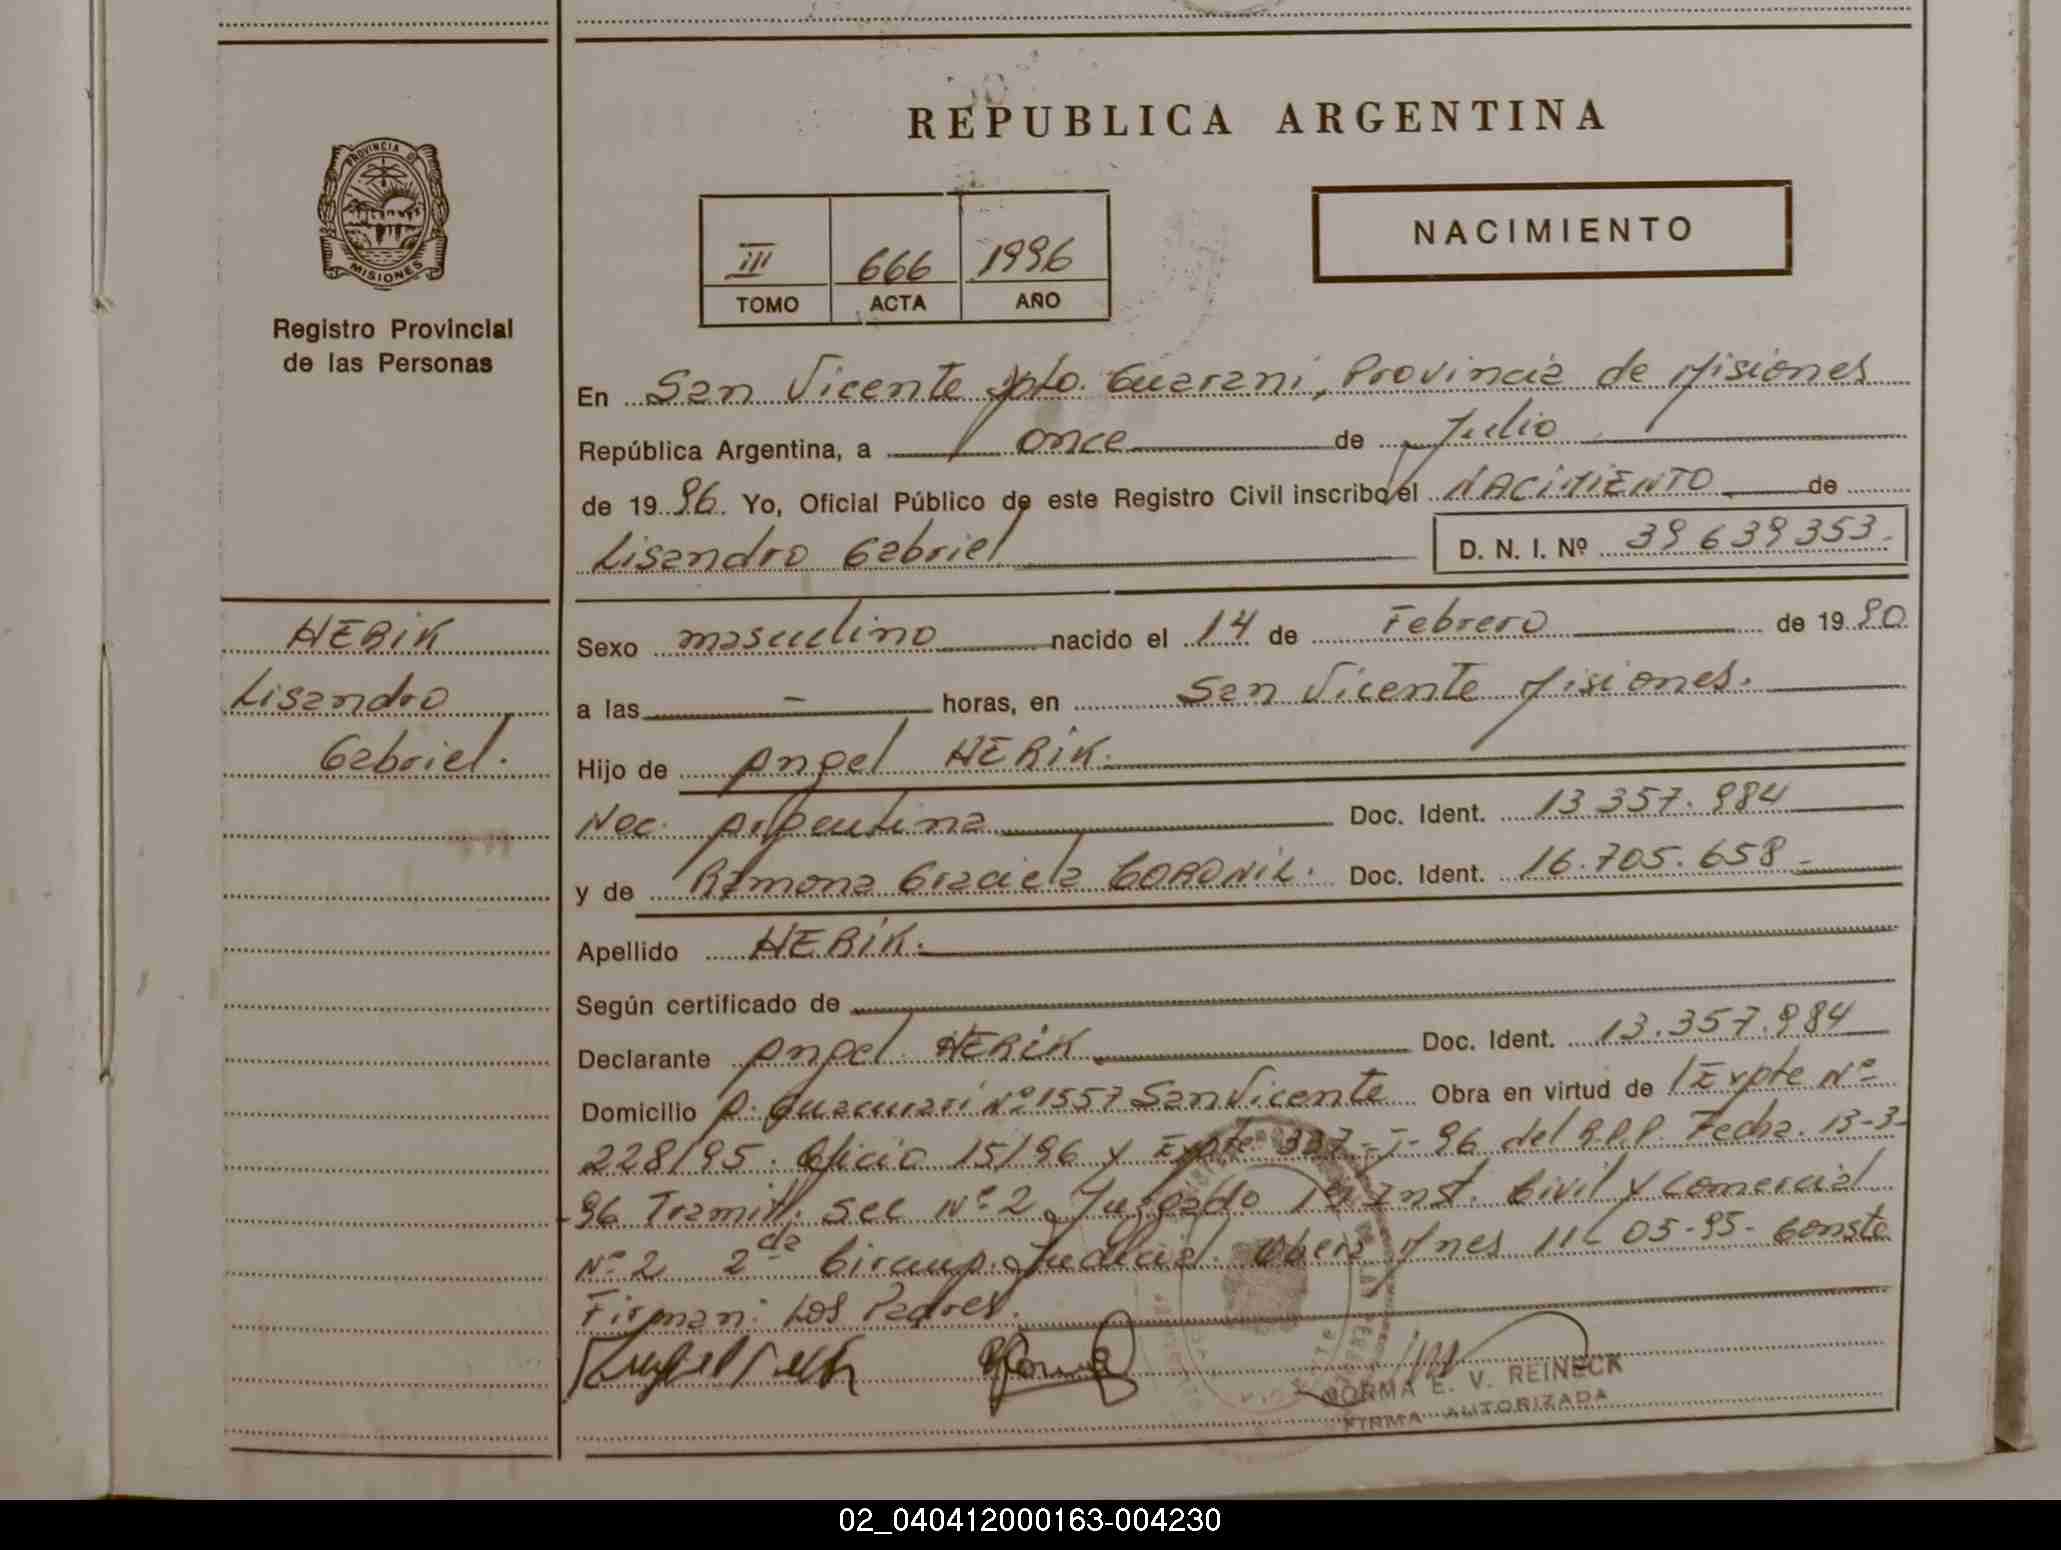 REPUBLICA ARGENTINA
PROVINCIA DE
MISIONES
Registro Provincial
de las Personas
III 666 1996
TOMO ACTA AÑO
NACIMIENTO
En San Vicente Dpto. Guarani, Provincia de Misiones
República Argentina, a once de Julio
de 1996. Yo, Oficial Público de este Registro Civil inscribo el NACIMIENTO de
Lisandro Gabriel D. N. I. Nº 39639353.-
HERIK
Lisandro
Gabriel.
Sexo masculino nacido el 14 de Febrero de 1990
a las - horas, en San Vicente Misiones.
Hijo de Angel HERIK.
Nac. Argentina Doc. Ident. 13.357.984
y de Ramona Graciela CORONIL. Doc. Ident. 16.705.658.-
Apellido HERIK.
Según certificado de
Declarante Angel HERIK Doc. Ident. 13.357.984
Domicilio A. Guacurari Nº 1557 San Vicente Obra en virtud de Expte Nº
228/95. Oficio 15/96 y Expte 337-I-96 del R.P.P. Fecha. 13-3-
96 Tramit. Sec Nº 2 Juzgado 1ª Inst. Civil y Comercial
Nº 2 2da Circunp. Judicial. Obera Mnes 11-05-95- Conste
Firman: Los Padres.
NORMA E. V. REINECK
FIRMA AUTORIZADA
02_040412000163-004230